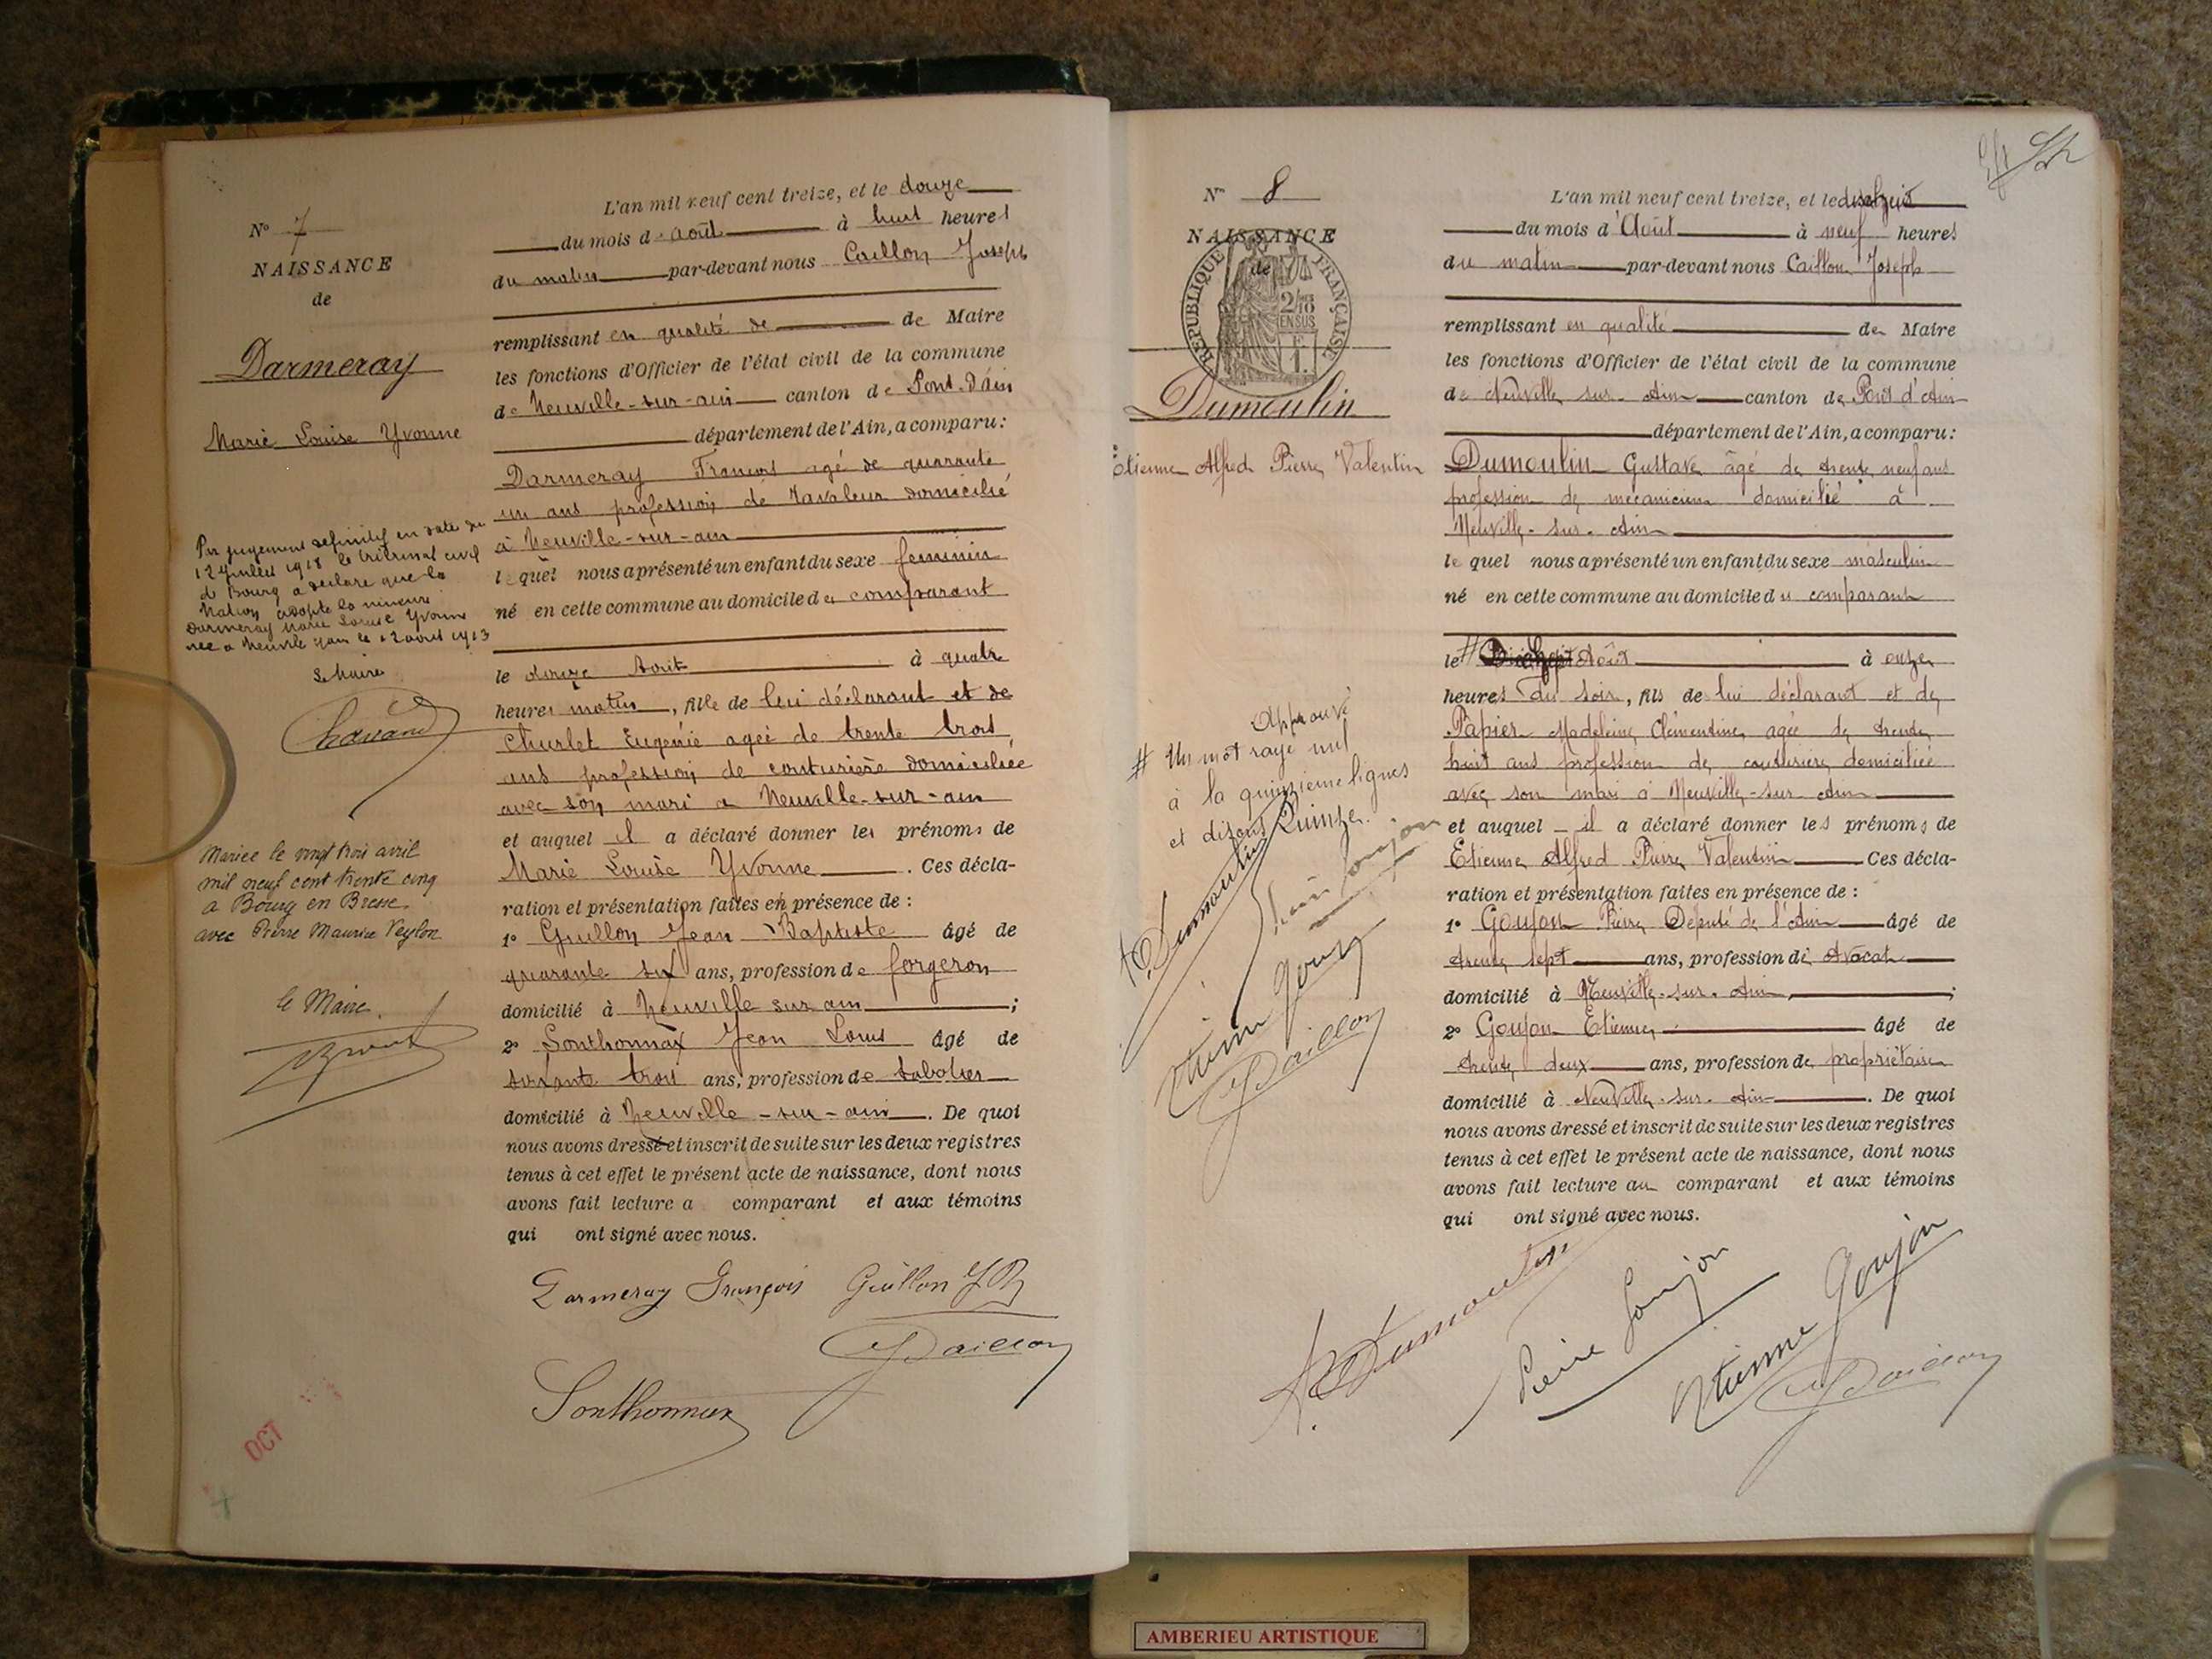 N° 7
NAISSANCE
de
Darmeray
Marie Louise Yvonne
Par jugement definitif en date du
12 juillet 1918 le tribunal civil
de Bourg a declaré que la
Nation adopte la mineure
Darmeray Marie Louise Yvonne
née a Neuville s/ain le 12 aout 1913
Le Maire
Mariée le vingt trois avril
mil neuf cent trente cinq
a Bourg en Bresse
avec Pierre Maurice Veylon
le Maire
L'an mil neuf cent treize, et le douze
du mois d'août à huit heures
du matin par-devant nous Caillon Joseph
remplissant en qualité de de Maire
les fonctions d'Officier de l'état civil de la commune
de Neuville-sur-ain canton de Pont-d'ain
département de l'Ain, a comparu:
Darmeray François agé de quarante
un ans profession de domicilié
à Neuville-sur-ain
lequel nous a présenté un enfant du sexe feminin
né en cette commune au domicile du comparant
le douze Aout à quatre
heures matin, fille de lui déclarant et de
Churlet Eugénie agée de trente trois
ans profession de couturière domiciliée
avec son mari a Neuville-sur-ain
et auquel il a déclaré donner les prénoms de
Marie Louise Yvonne. Ces décla-
ration et présentation faites en présence de :
1° Guillon Jean Baptiste âgé de
quarante six ans, profession de forgeron
domicilié à Neuville sur ain ;
2° Sonthonnax Jean Louis âgé de
soixante trois ans, profession de sabotier
domicilié à Neuville-sur-ain. De quoi
nous avons dressé et inscrit de suite sur les deux registres
tenus à cet effet le présent acte de naissance, dont nous
avons fait lecture a comparant et aux témoins
qui ont signé avec nous.
Darmeray François Guillon JB
JCaillon
Sonthonnax
OCT
N° 8
NAISSANCE
de
REPUBLIQUE FRANÇAISE
2/10
EN SUS
Dumoulin
Etienne Alfred Pierre Valentin
Approuvé
# Un mot rayé nul
à la quinzième lignes
et disons Quinze.
Dumoulin
Pierre Goujon
Etienne Goujon
JCaillon
L'an mil neuf cent treize, et le
du mois d'Août à neuf heures
du matin par-devant nous Caillon Joseph
remplissant en qualité de Maire
les fonctions d'Officier de l'état civil de la commune
de Neuville sur-Ain canton de Pont d'Ain
département de l'Ain, a comparu:
Dumoulin Gustave âgé de trente neuf ans
profession de mécanicien domicilié à
Neuville-sur-Ain
le quel nous a présenté un enfant du sexe masculin
né en cette commune au domicile du comparant
le # Août à onze
heures du soir, fils de lui déclarant et de
Papier Madeleine Clémentine agée de trente
huit ans profession de couturière domiciliée
avec son mari à Neuville-sur-Ain
et auquel il a déclaré donner les prénoms de
Etienne Alfred Pierre Valentin Ces décla-
ration et présentation faites en présence de :
1° Goujon Pierre Député de l'Ain âgé de
trente sept ans, profession de Avocat
domicilié à Neuville-sur-Ain ;
2° Goujon Etienne âgé de
trente deux ans, profession de propriétaire
domicilié à Neuville-sur-Ain. De quoi
nous avons dressé et inscrit de suite sur les deux registres
tenus à cet effet le présent acte de naissance, dont nous
avons fait lecture au comparant et aux témoins
qui ont signé avec nous.
Dumoulin Pierre Goujon Etienne Goujon
JCaillon
AMBERIEU ARTISTIQUE